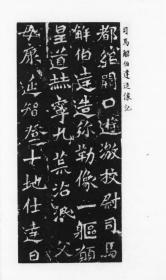 司馬解伯達造像記
都綰闕口遊激校尉司馬
解伯達造弥勒像一軀願
皇道赫寧九荒沾澤父
母康延智登十地仕達日